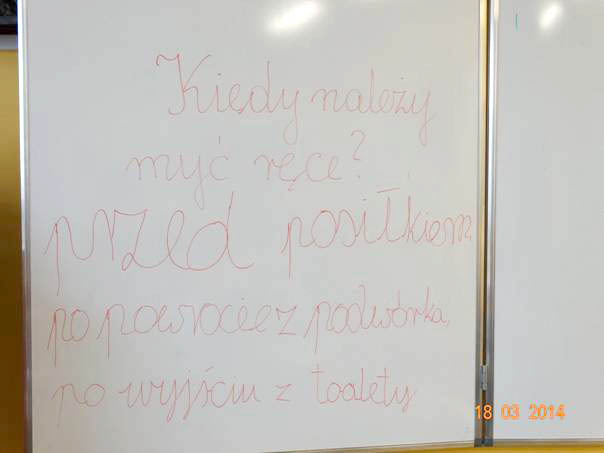 Kiędy należy
myć ręce?
przed posiłkiem
po powrocie z podwórka,
po wyjściu z toalety
18 03 2014